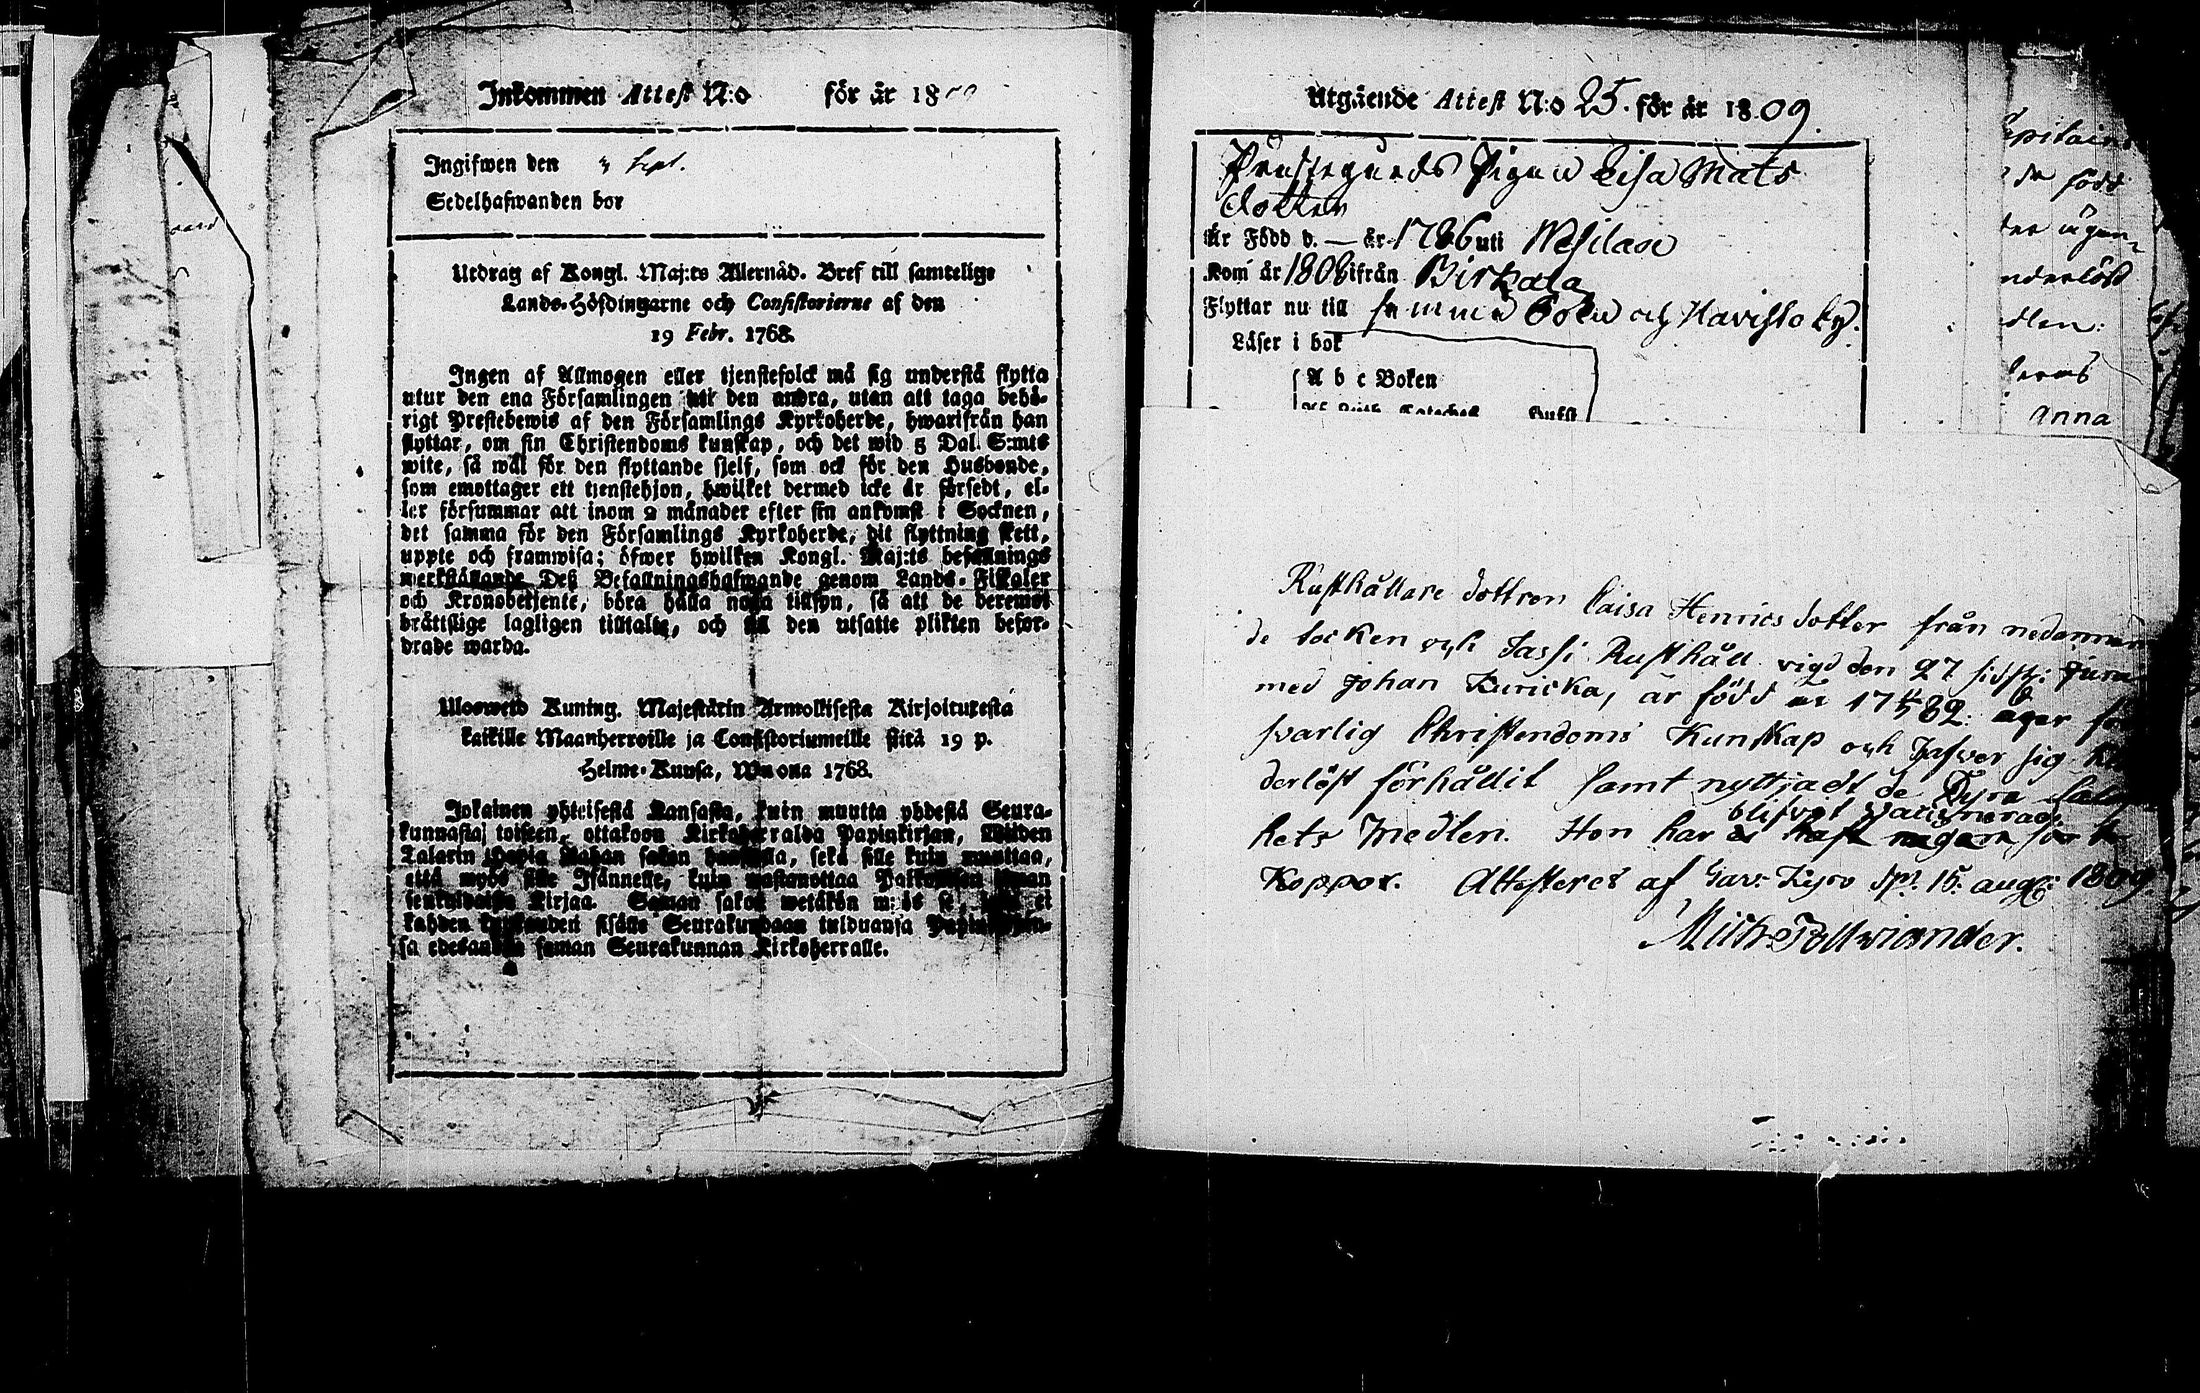 Inkommen Attest N:o för år 18
Ingifwen den Sept.
Sedelhafwanden bor
Utdrag af Kongl. Maj:ts Allernåd. Bref till samtelige
Lands-Höfdingarne och Consistorierne af den
19 Febr. 1768.
Ingen af Allmogen eller tjenstefolck må sig understå flytta
utur den ena Församlingen uti den andra, utan att taga behö-
rigt Prestebewis af den Församlings Kyrkoherde, hwarifrån han
flyttar, om sin Christendoms kunskap, och det wid 5 Dal. S:mts
wite, så wäl för den flyttande sjelf, som ock för den Husbonde,
som emottager ett tjenstehjon, hwilket dermed icke är försedt, el-
ler försummar att inom 2 månader efter sin ankomst i Socknen,
det samma för den Församlings Kyrkoherde, dit flyttning skett,
uppte och framwisa; öfwer hwilken Kongl. Maj:ts befallnings
werkställande Deß Befallningshafwande genom Lands-Fiskaler
och Kronobetjente, böra hålla noga tillsyn, så att de deremot
bråttslige lagligen tilltalte, och till den utsatte plikten befor-
drade warda.
Uloswero Kuning. Majestätin Armollisesta Kirjoituxesta
kaikille Maanherroille ja Consistoriumeille siitä 19 p.
Helme-Kuusa, Wuonna 1768.
Jokainen yhteisestä Kansasta, kuin muutta yhdestä Seura-
kunnasta toiseen, ottakoon Kirkoherralda Papinkirjan, Wiiden
Talarin sakon
että myös sille Isännelle, kuin
Kirjaa. Saman sakon wetäkön m:ös se,
kahden sisälle Seurakundaan tulduansa
sa edesandaa saman Seurakunnan Kirkoherralle.
Utgående Attest N:o 25. för år 1809.
Prästegårds Pigan Lisa Mats
dotter
Är Född d. — år 1786 uti Wesilax
Kom år 1808 ifrån Birkala
Flyttar nu till samma Socken och Havisto by.
Läser i bok
A b c Boken
Rusthållare dottren Caisa Henrics dotter från nedannäm
de socken och Jassi Rusthåll vigd den 27 sidstl: Juni
med Johan Kuricka, är född år 17 4/5 82: äger för
svarlig Christendoms Kunskap och hafver sig
derlöst förhållit samt nyttjadt de Dyra Salig
hets medlen. Hon har
blifvit Vaccinerad
Koppor. Attesteres af Tav: Kyro Spl. 15: aug: 1809.
Mich: Pollviander.
apitain
född
nderlöst
dlen:
anna